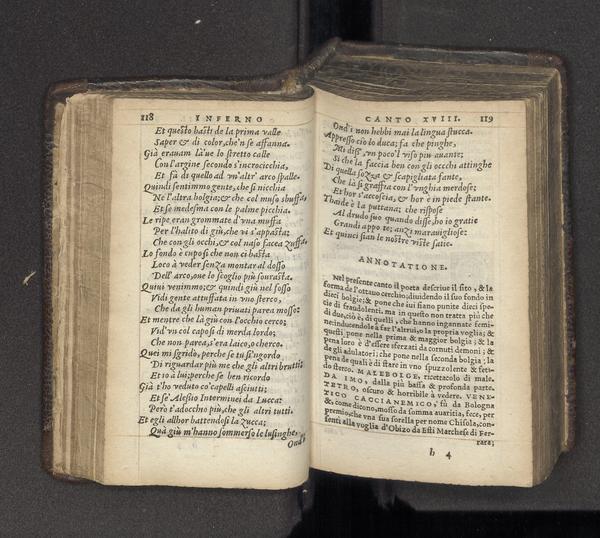 118 INFERNO
Et questo basti de la prima valle
Saper & di color, ch'n se affanna.
Già eravam là 've lo stretto calle
Con l'argine secondo s'incrocicchia,
Et fà di quello ad vn'altr' arco spalle.
Quindi sentimmo gente, che si nicchia
Ne l'altra bolgia; & che col muso sbuffa,
Et se medesma con le palme picchia.
Le ripe eran grommate d'vna muffa
Per l'halito di giù, che vi s'appasta;
Che con gli occhi, & col naso facea zuffa.
Lo fondo è cupo sì che non ci basta
Loco à veder senza montar al dosso
Dell'arco, oue lo scoglio più sourasta.
Quiui venimmo; & quindi giù nel fosso
Vidi gente attuffata in vno sterco,
Che da gli human priuati parea mosso:
Et mentre che là giù con l'occhio cerco;
Vid'vn col capo sì di merda lordo;
Che non parea, s'era laico, o cherco.
Quei mi sgridò, perche se tu sì 'ngordo
Di riguardar più me che gli altri brutti?
Et io à lui; perche se ben ricordo
Già t'ho veduto co' capelli asciutti;
Et se' Alesio Interminei da Lucca:
Però t'adocchio più, che gli altri tutti.
Et egli allhor battendosi la zucca;
Quà giù m'hanno sommerso le lusinghe,
Ond'i
CANTO XVIII. 119
Ond'i non hebbi mai la lingua stucca.
Appresso ciò lo duca; fa che pinghe,
Mi diss', vn poco 'l viso piu auante;
Sì che la faccia ben con gli occhi attinghe
Di quella sozza & scapigliata fante,
Che là si graffia con l'vnghia merdose;
Et hor s'accoscia, & hor è in piede stante.
Thaide è la puttana; che rispose
Al drudo suo quando disse, ho io gratie
Grandi appo te; anzi marauigliose:
Et quinci sian le nostre viste satie.
ANNOTATIONE.
Nel presente canto il poeta descriue il sito, & la
forma de l'ottauo cerchio, diuidendo il suo fondo in
dieci bolgie; & pone che iui siano punite dieci spe-
cie di fraudolenti. ma in questo non tratta più che
di due, ciò è, di quelli, che hanno ingannate femi-
ne inducendole à far l'altrui, o la propria voglia; &
questi, pone nella prima & maggior bolgia; & la
pena loro è d'essere sferzati da cornuti demoni; &
de gli adulatori; che pone nella seconda bolgia; la
pena de quali è di stare in vno spuzzolente & feti-
do sterco. MALEBOLGE, ricettacolo di male.
DA IMO, dalla più bassa & profonda parte.
TETRO, oscuro & horribile à vedere. VENE-
TICO CACCIANEMICO, fù da Bologna
&, come dicono, mosso da somma auaritia, fece, per
premio, che vna sua sorella per nome Ghisola, con-
sentì alla voglia d'Obizo da Esti Marchese di Fer-
rara;
h 4